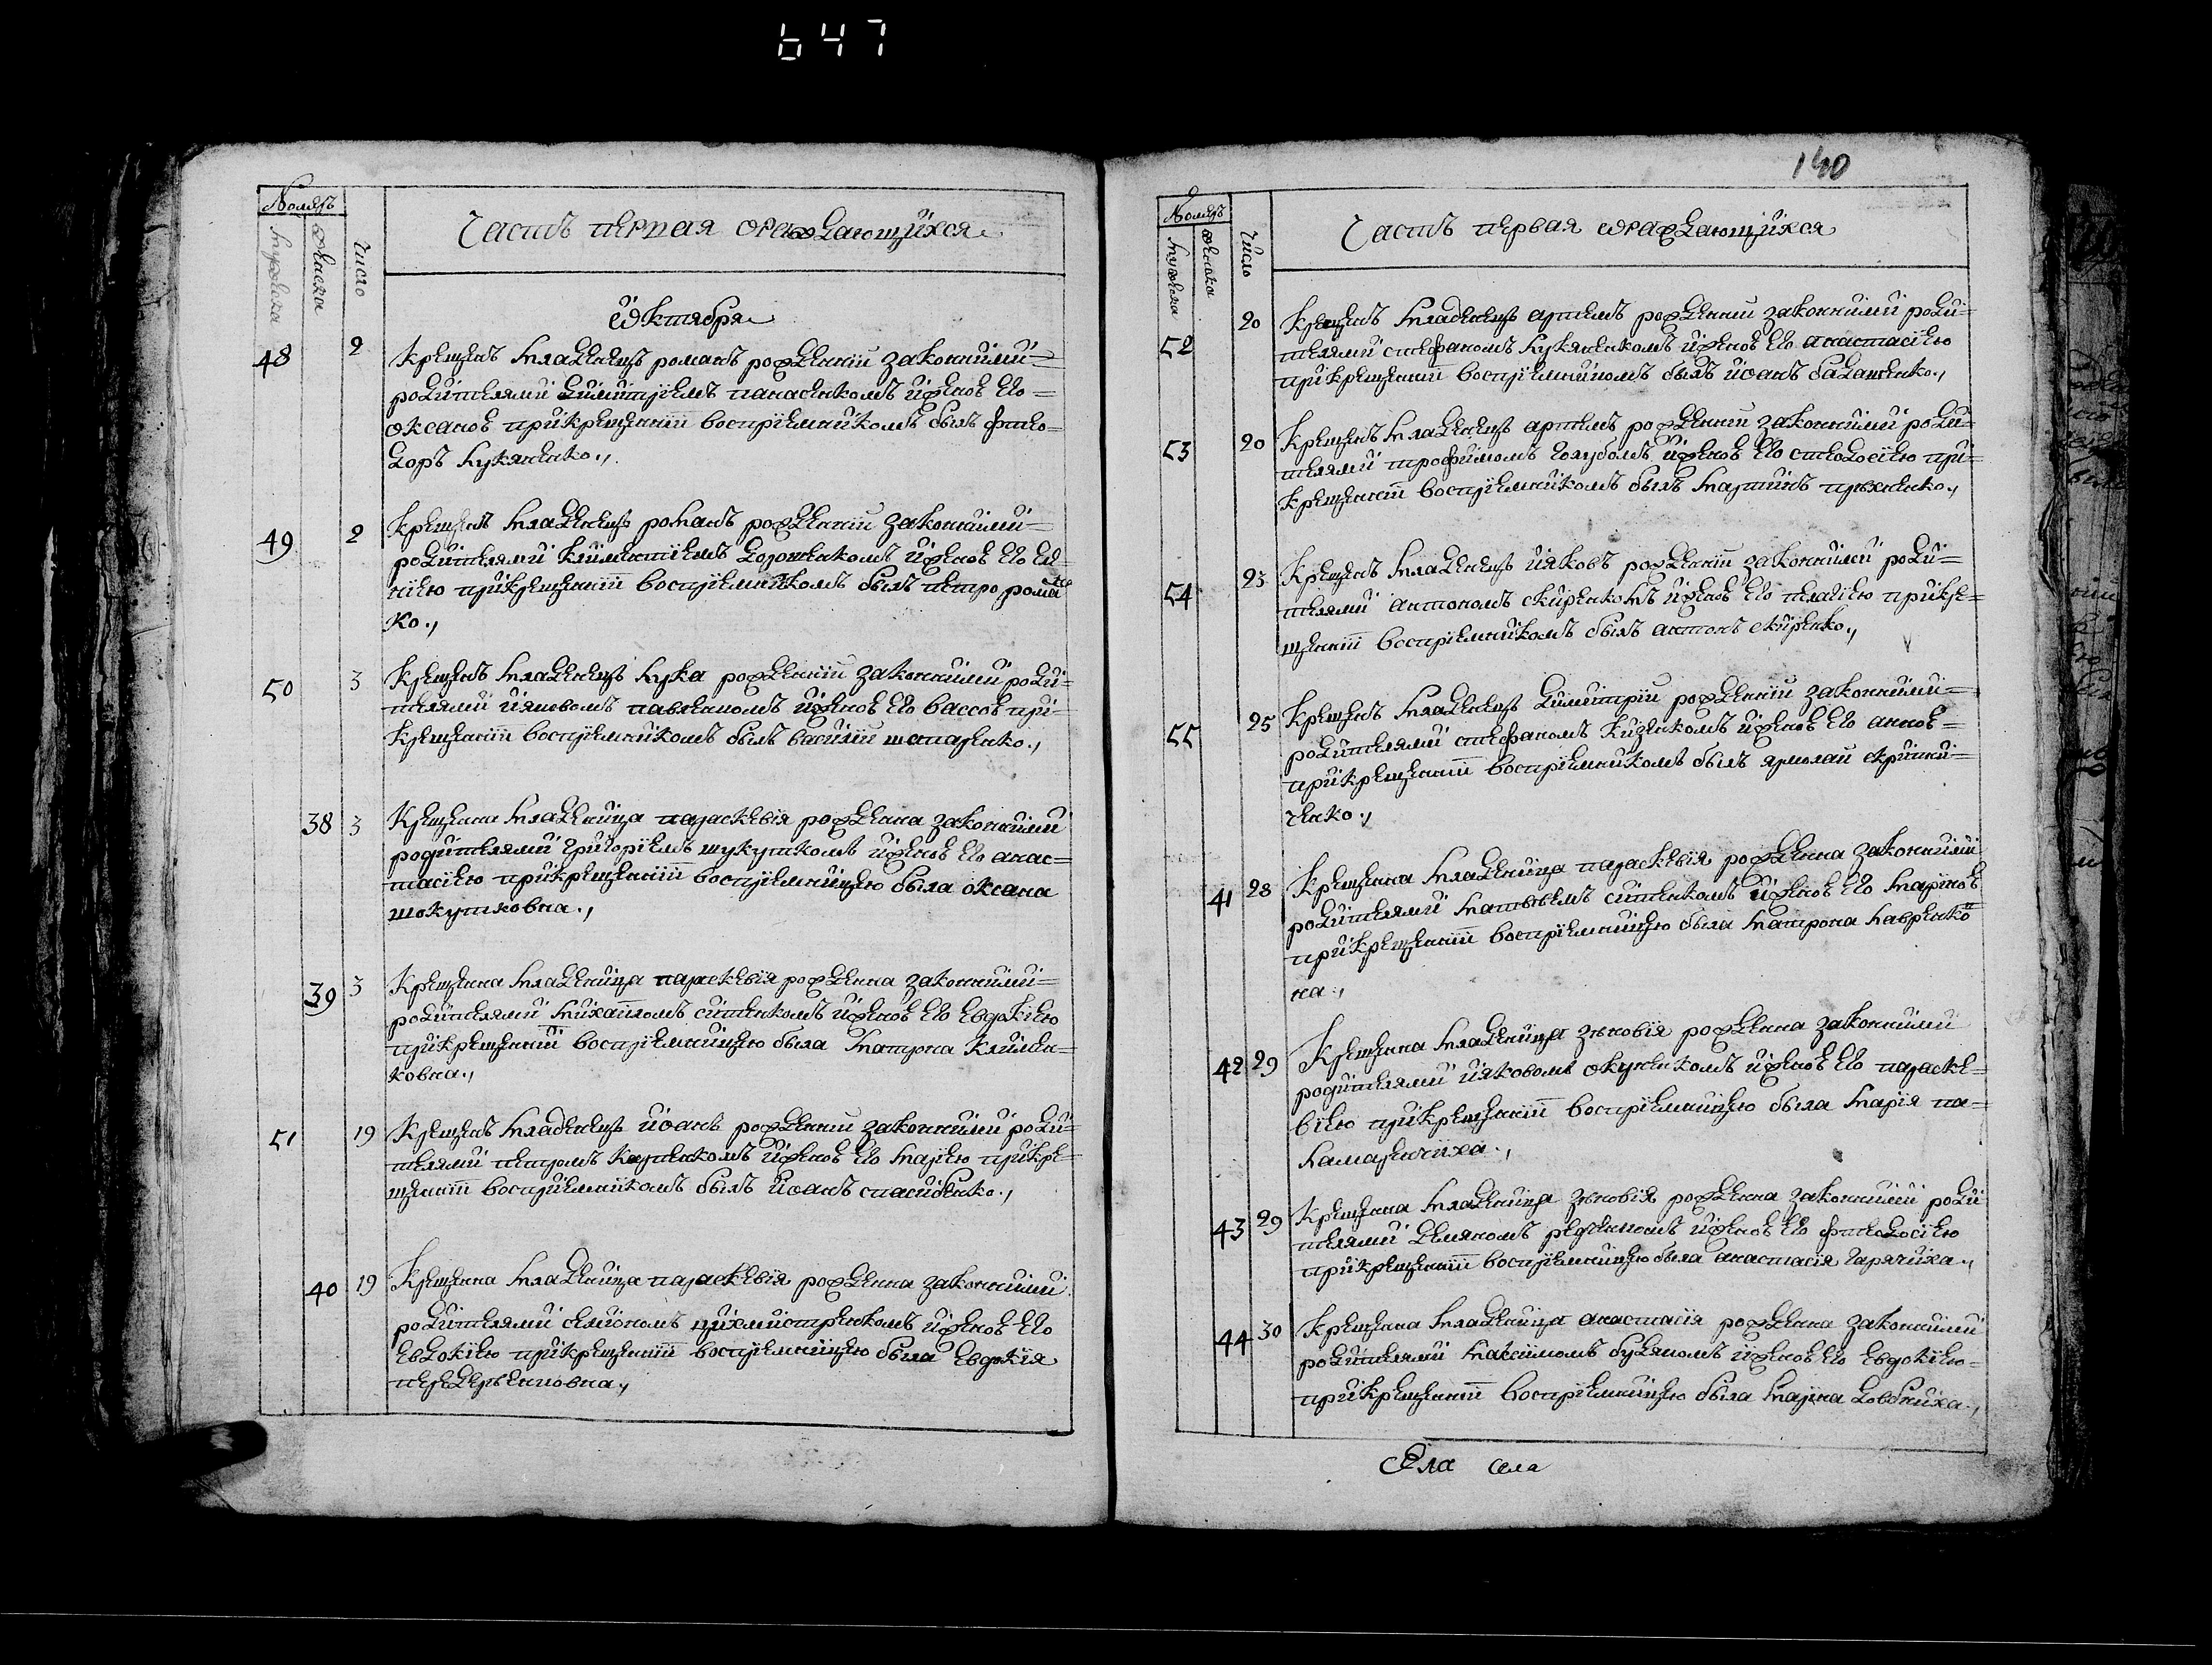 647
Номеръ
мужеска
женска
число
Часть первая ораждающихся
Октября
48 2 крещенъ младенецъ романъ рожденній законними=
родителями димитріемъ панасенкомъ ѝженоѣ его=
оксаноѣ прикрещеніи воспріемникомъ былъ фтео=
доръ лукяненко.,
49 2 крещенъ младенецъ романъ рожденній законними=
родителями климентіемъ дорошенкомъ ѝженоѣ его еле=
ніею прикрещеніи воспріемникомъ былъ петро роман
ко.,
50 3 крещенъ младенецъ лука рожденній законними роди=
телями ияковомъ павленкомъ ѝженоѣ его вассоѣ при=
крещеніи воспріемникомъ былъ василій шапаренко.,
38 3 крещена младеница параскевія рождена законними
родителями григоріемъ шукуткомъ ѝженоѣ его анас=
тасіею прикрещеніи воспріемницею была оксана
шокутковна.,
39 3 крещена младеница параскевія рождена законними=
родителями михаиломъ ситенкомъ ѝженоѣ его евдокіею
прикрещеніи воспріемницею была матрона клімен=
ковна.,
51 19 крещенъ младенецъ иоанъ рожденній законними роди=
телями петромъ ѝженоѣ его маріею прикре=
щеніи воспріемникомъ былъ иоанъ спасибенко.,
40 19 крещена младеница параскевія рождена законними
родителями симіономъ ціхмистренкомъ ѝженоѣ его
евдокіею прикрещеніи воспріемницею была евдокія
передеріенковна.,
140
Номеръ
мужеска
женска
число
Часть первая ѡраждающихся
52 20 крещенъ младенецъ артемъ рожденній законними роди=
телями стефаномъ лукяненкомъ ѝженоѣ его анастасіею
прикрещеніи воспріемникомъ былъ иоанъ балашенко.,
53 20 крещенъ младенецъ артемъ рожденній законними роди=
телями трофимомъ голубомъ ѝженоѣ его стеодосіею при=
крещеніи воспріемникомъ былъ мартинъ пѣхненко.,
54 23 крещенъ младенецъ ияковъ рожденній законними роди=
телями антономъ скиренкомъ ѝженоѣ его пелагіею прикре=
щеніи воспріемникомъ былъ антонъ скіренко.,
55 25 крещенъ младенецъ димитрій рожденній законними=
родителями стефаномъ кизенкомъ ѝженоѣ его анноѣ=
прикрещеніи воспріемникомъ былъ ярмолай скріпни=
ченко.,
41 28 крещена младеница параскевія рождена законними
родителями матвѣемъ ситенкомъ ѝженоѣ его мариноѣ
прикрещеніи воспріемницею была матрона лавренков
на.,
42 29 крещена младеница зѣновія рождена законними
родителями ияковомъ окуненкомъ ѝженоѣ его параске=
віею прикрещеніи воспріемницею была марія па=
ламаренчиха.,
43 29 крещена младеница зѣновія рождена законними роди
телями демяномъ редченкомъ ѝженоѣ его фтеодосіею
прикрещеніи воспріемницею была анастасія гарячиха.,
44 30 крещена младеница анастасія рождена законними
родителями максимомъ будякомъ ѝженоѣ его евдокіею=
прикрещеніи воспріемницею была марина довбниха.,
Села села